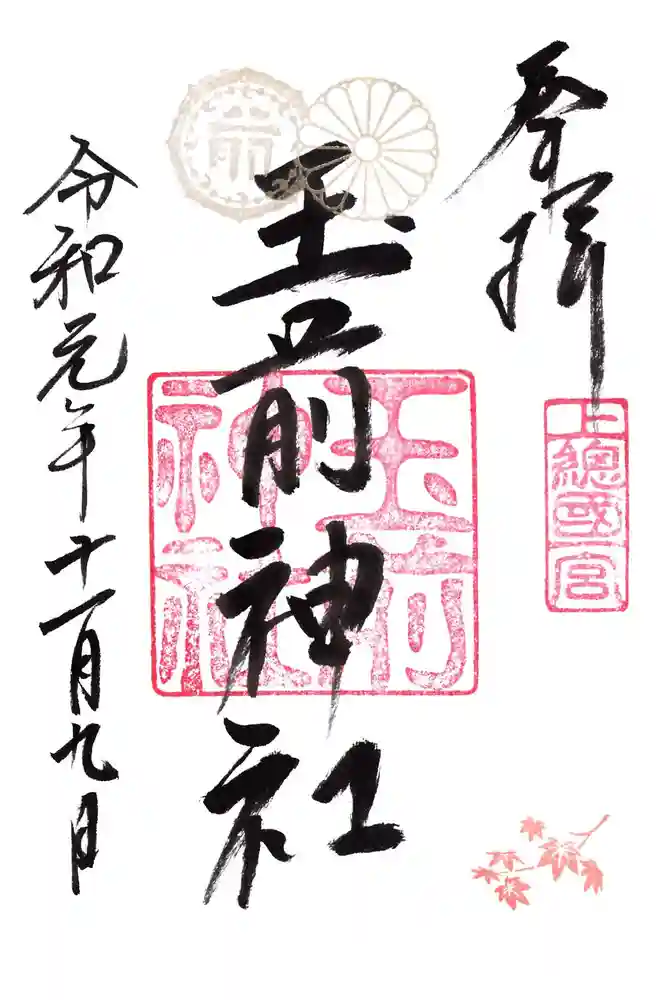 奉拝
上總國宮
玉前神社
玉前神社
令和元年十一月九日